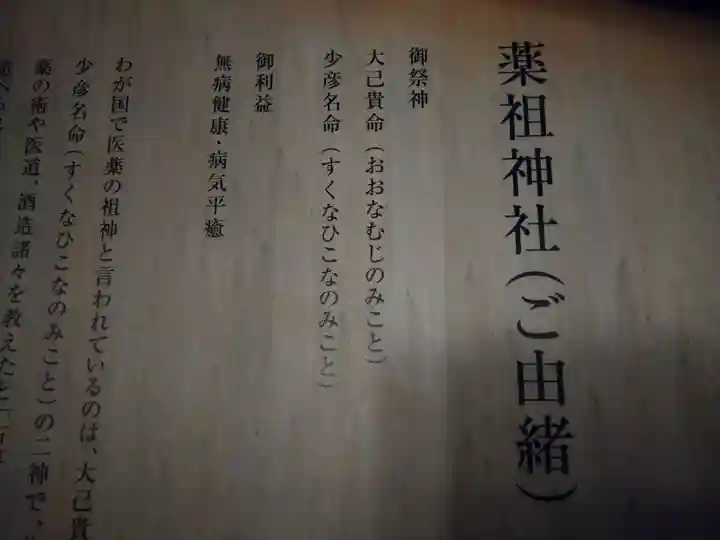 薬祖神社（ご由緒）
御祭神
大己貴命（おおなむじのみこと）
少彦名命（すくなひこなのみこと）
御利益
無病健康・病気平癒
わが国で医薬の祖神と言われているのは、大己貴
少彦名命（すくなひこなのみこと）の二神で、
薬の術や医道、酒造諸々を教えたと「古